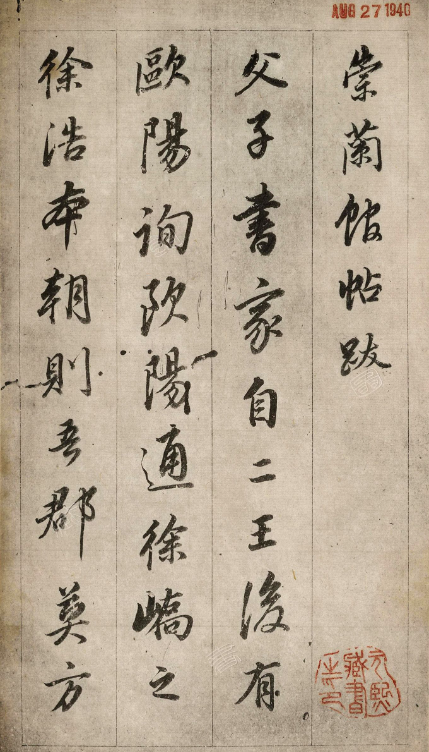 AUG 27 1940
崇蘭館帖跋
父子書家自二王後有
歐陽詢歐陽通徐嶠之
徐浩本朝則吾郡莫方